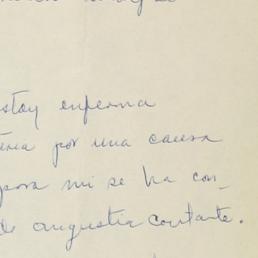 stoy enferma
por una causa
para mi se ha con_
de angustia constante.